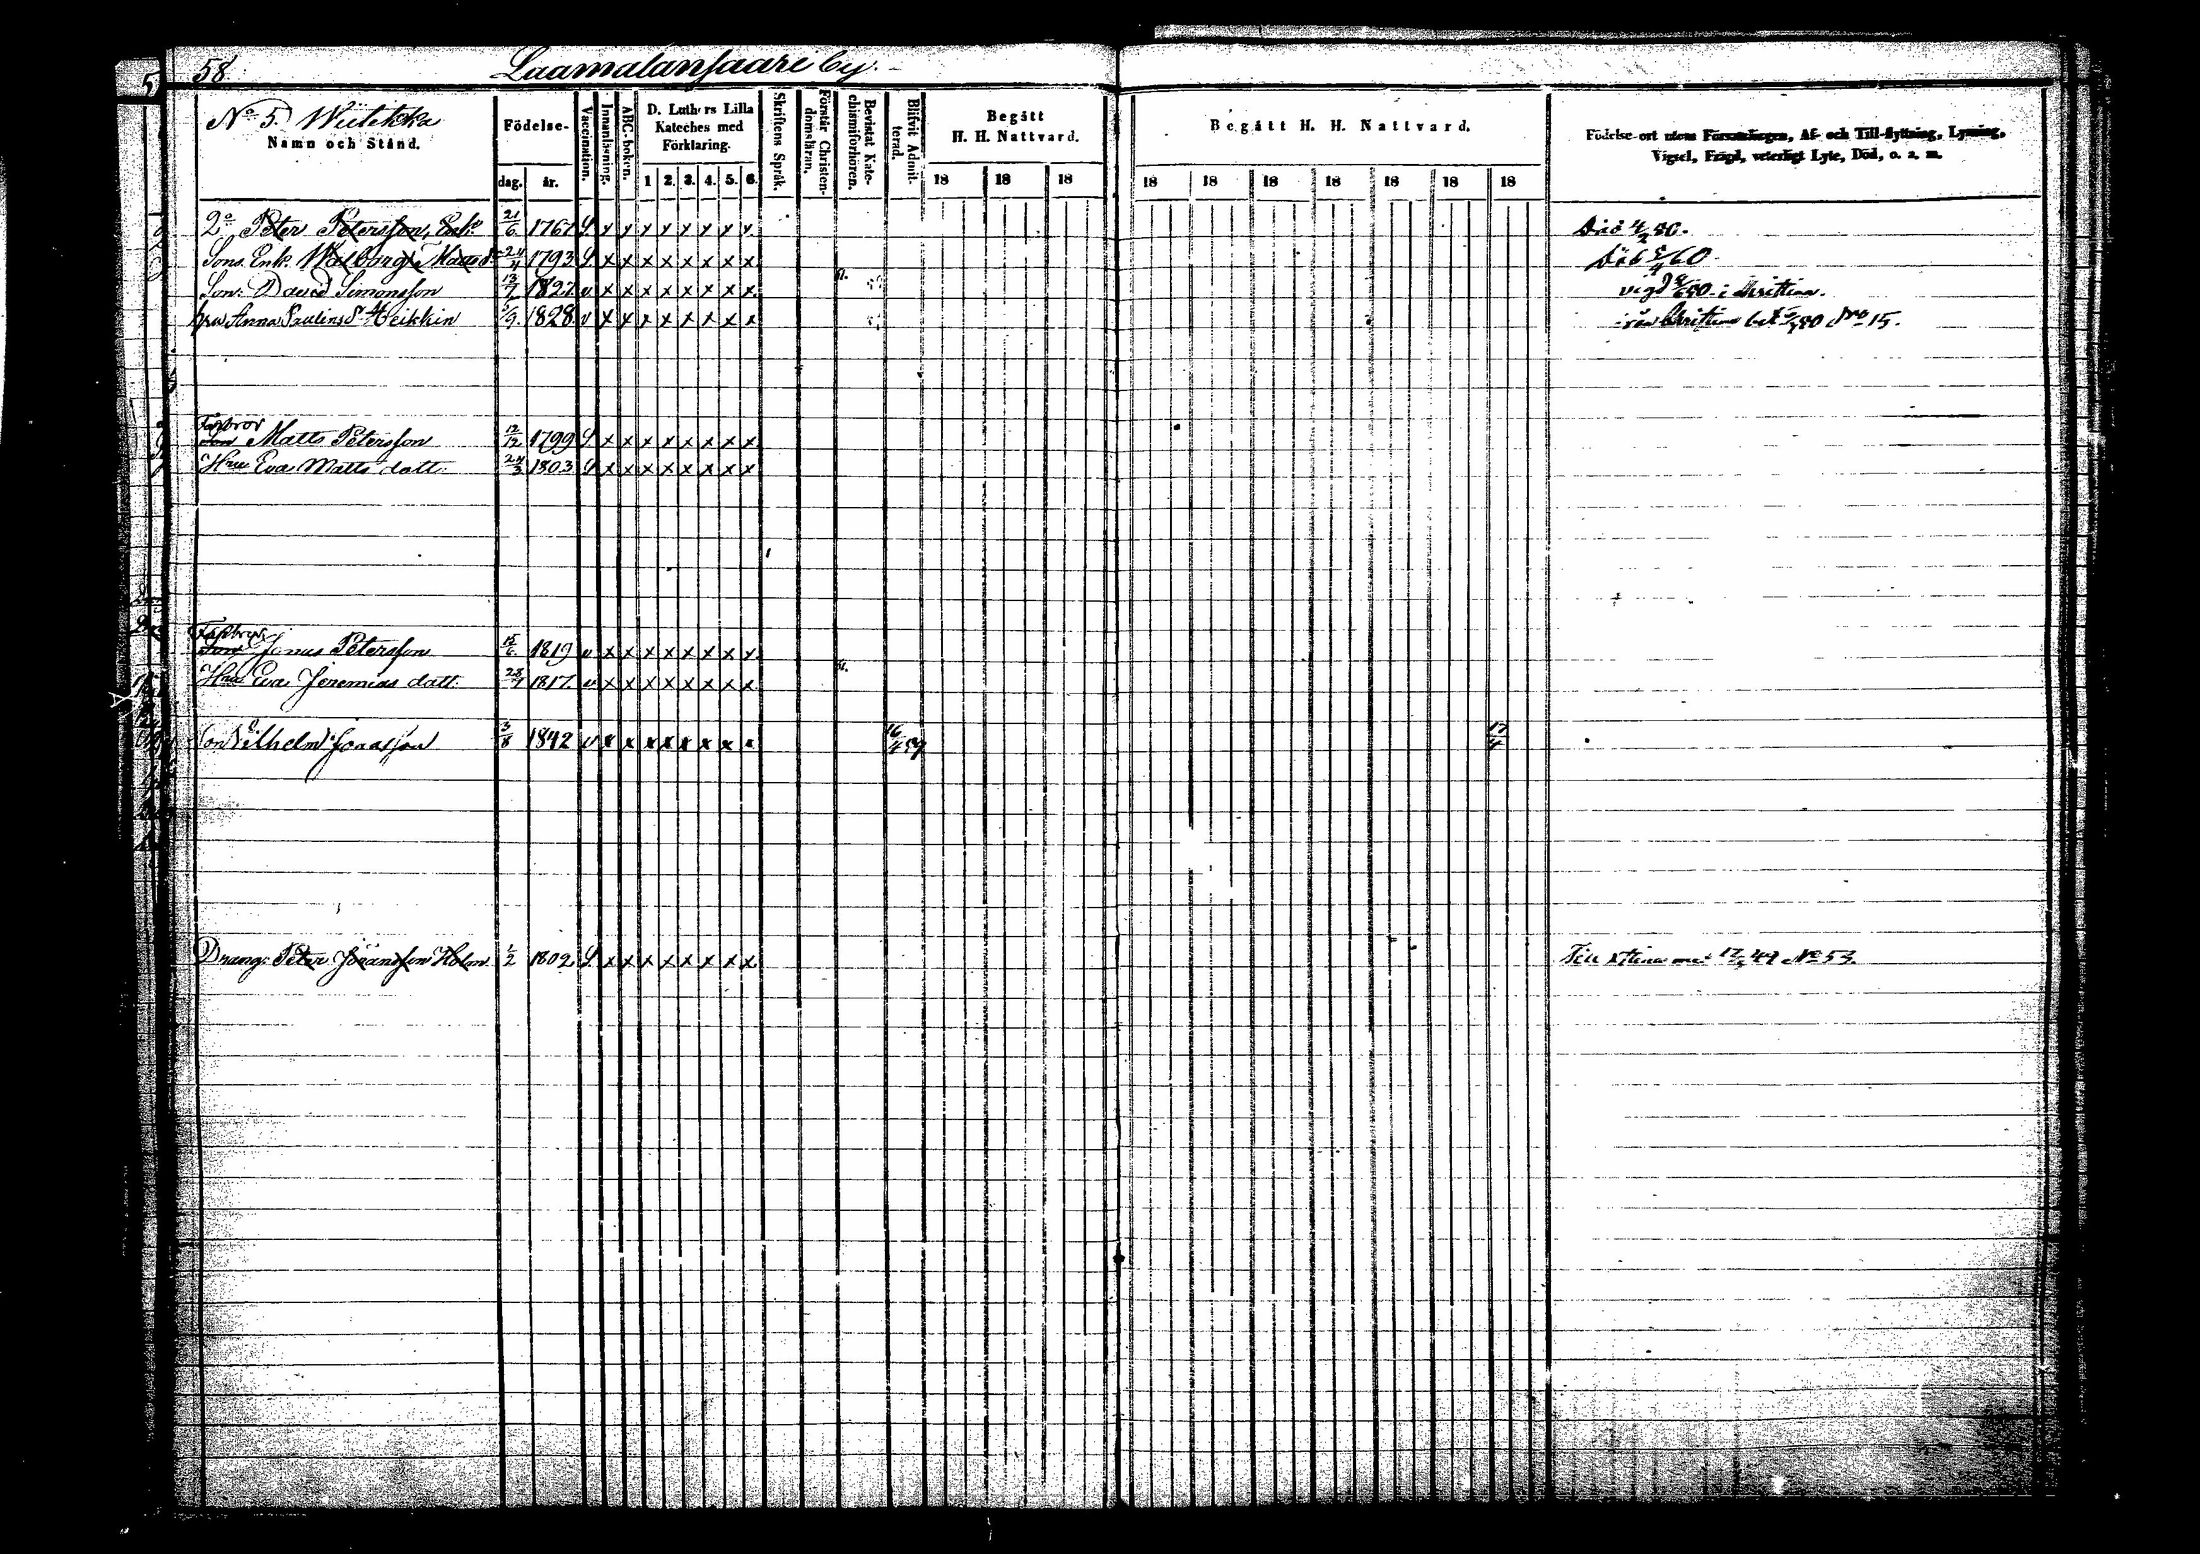 58
Laamalansaari by.
No 5. Wiitikka
Namn och Stånd.
Födelse-
dag. år.
Vaccination.
Innanläsning.
ABC-boken.
D. Luthers Lilla Kateches med Förklaring.
1 2. 3. 4. 5. 6.
Skriftens Språk.
Förstår Christendomsläran.
Bevistat Katechismiförhören.
Blifvit Admitterad.
Begått H. H. Nattvard.
18 18 18
Begått H. H. Nattvard.
18 18 18 18 18 18 18
Födelse-ort utom Församlingen, Af- och Till-flyttning, Lysning,
Vigsel, Frägd, veterligt Lyte, Död, o. s. m.
2o Peter Petersson, Enk. 21/6 1767 S x x x x x x x x Död 4/2 50.
Sons Enk. Walborg Matts d. 24/4 1793 S x x x x x x x x Död 5/4 60
Son: David Simonsson 13/7 1827 v x x x x x x x x vigd 50 i Christina.
hru Anna Paulins d. Heikkin /9 1828 v x x x x x x x x Christina bet 50 Nro 15.
Farbror
Son Matts Petersson 12/12 1799 S x x x x x x x x
Hru Eva Matts datt. 24/3 1803 S x x x x x x x x
Farbror
Son Jonas Petersson 15/6 1819 v x x x x x x x x
Hru Eva Jeremias datt. 28/7 1817 v x x x x x x x x
Son Vilhelm Jonasson 3/8 1842 v x x x x x x x x 16/4 59 17/4
Dräng Peter Johansson Holm 1/2 1802 S x x x x x x x x Till 49 No 53.